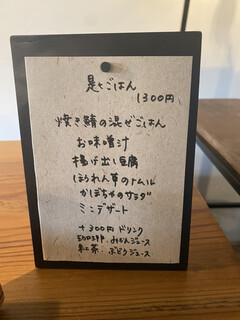 是とごはん
1300円
焼き鯖の混ぜごはん
お味噌汁
揚げ出し豆腐
ほうれん草のナムル
かぼちゃのサラダ
ミニデザート
+300円 ドリンク
珈琲 みかんジュース
紅茶 ぶどうジュース